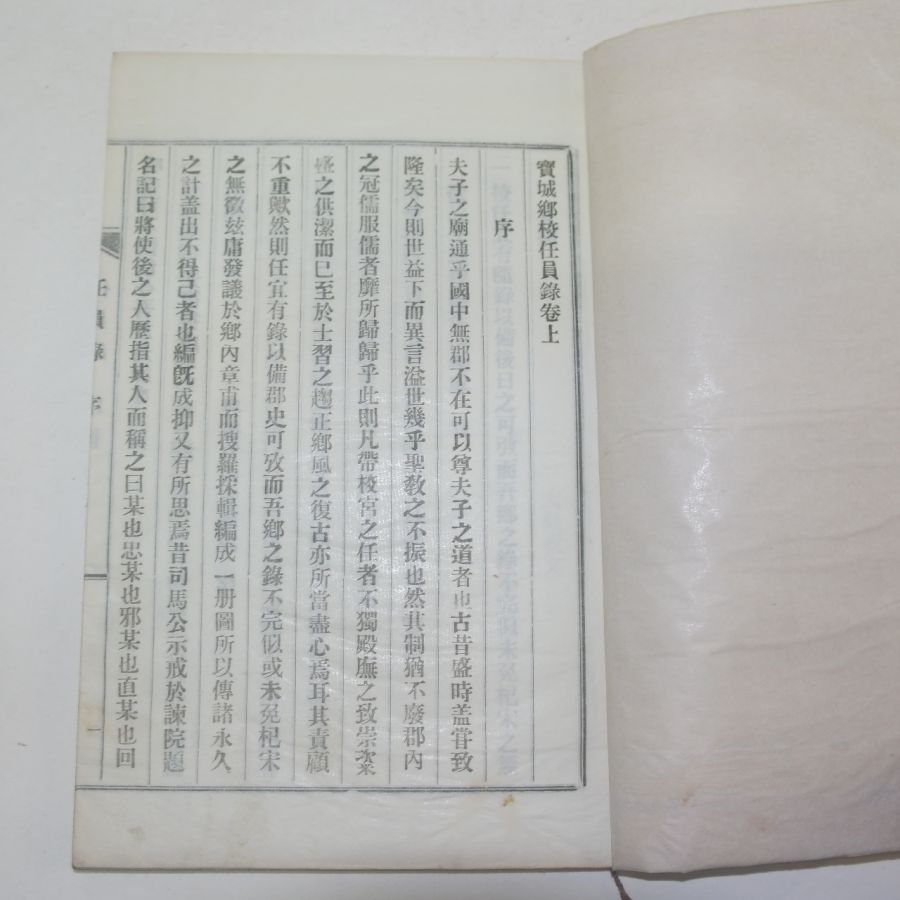 寶城鄉校任員錄卷上
序
夫子之廟通乎國中無郡不在可以尊夫子之道者也古昔盛時盖甞致
隆矣今則世益下而異言溢世幾乎聖敎之不振也然其制猶不廢郡內
之冠儒服儒者靡所歸歸乎此則凡帶校宮之任者不獨殿廡之致崇粢
盛之供潔而已至於士習之趨正鄉風之復古亦所當盡心焉耳其責顧
不重歟然則任宜有錄以備郡史可攷而吾鄉之錄不完似或未免杞宋
之無徵玆庸發議於鄉內章甫而搜羅採輯編成一册圖所以傳諸永久
之計盖出不得已者也編旣成抑又有所思焉昔司馬公示戒於諫院題
名記曰將使後之人歷指其人而稱之曰某也忠某也邪某也直某也回
任員錄 序 一